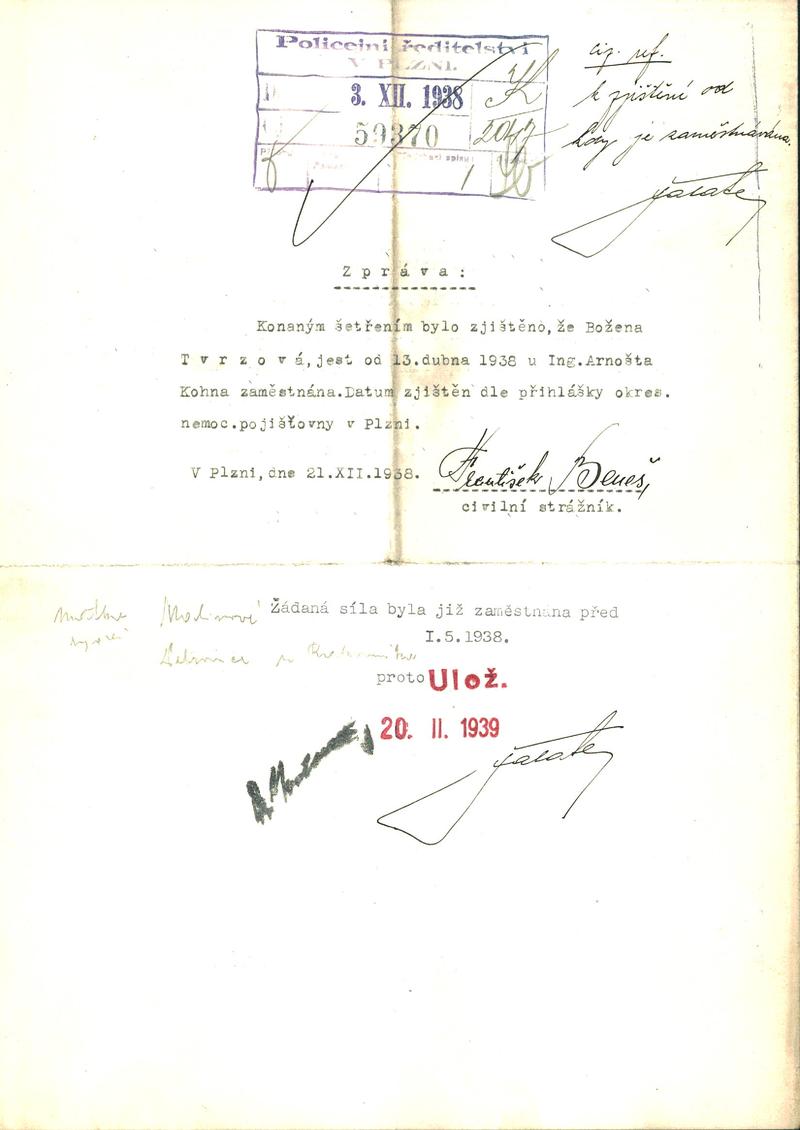 Policejní ředitelství
V PLZNI.
3. XII. 1938
59370
ciz. ref.
k zjištění od
kdy je zaměstnávána.
Zpráva:
Konaným šetřením bylo zjištěno,že Božena
Tvrzová,jest od 13.dubna 1938 u Ing.Arnošta
Kohna zaměstnána.Datum zjištěn dle přihlášky okres.
nemoc.pojišťovny v Plzni.
V Plzni,dne 21.XII.1938. František Beneš,
civilní strážník.
Žádaná síla byla již zaměstnána před
I.5.1938.
proto Ulož.
20. II. 1939